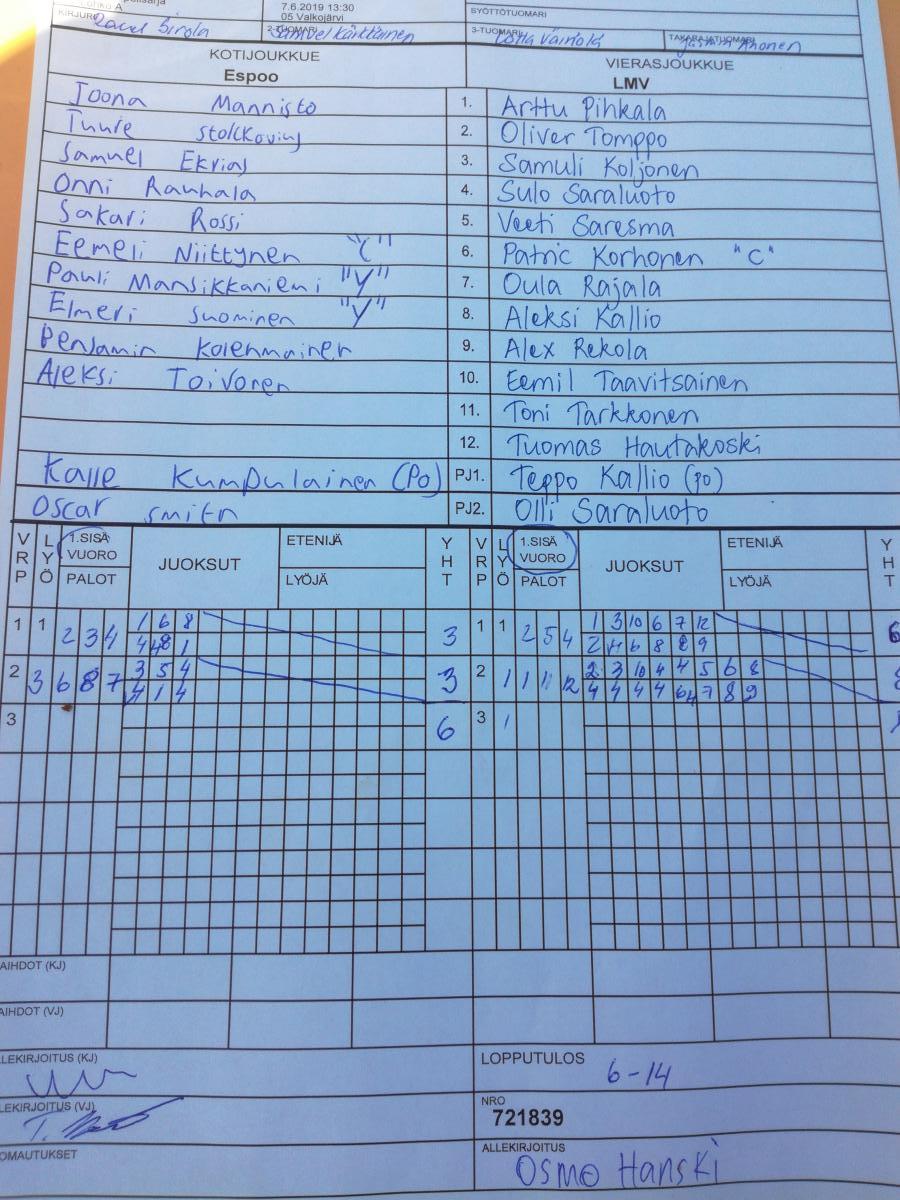 7.6.2019 13:30
SYÖTTÖTUOMARI
KIRJURI
05 Valkojärvi
2-TUOMARI
3-TUOMARI
TAKARAJATUOMARI
Samuel Kärkkäinen
Lotta Väinölä
Ahonen
KOTIJOUKKUE VIERASJOUKKUE
Espoo LMV
Joona Mannisto 1. Arttu Pihkala
Tuure 2. Oliver Tomppo
Samuel 3. Samuli Koljonen
Onni Rauhala 4. Sulo Saraluoto
Sakari Rossi 5. Veeti Saresma
Eemeli Niittynen "C" 6. Patric Korhonen "C"
Pauli Mansikkaniemi "Y" 7. Oula Rajala
Elmeri Suominen "Y" 8. Aleksi Kallio
Penjamin Kolehmainen 9. Alex Rekola
Aleksi Toivonen 10. Eemil Taavitsainen
11. Toni Tarkkonen
12. Tuomas Hautakoski
Kalle Kumpulainen (Po) PJ1. Teppo Kallio (po)
Oscar Smith PJ2. Olli Saraluoto
VRP LYÖ 1.SISÄ VUORO PALOT JUOKSUT ETENIJÄ LYÖJÄ YHT VRP LYÖ 1.SISÄ VUORO PALOT JUOKSUT ETENIJÄ LYÖJÄ YHT
1 1 2 3 4 1 6 8 3 1 1 2 5 4 1 3 10 6 7 12 6
2 3 6 8 7 3 5 4 3 2 1 1 11 12 2 3 10 4 4 5 6 8
4 1 4 4 4 4 4 7 8 9
3 6 3 1
AIHDOT (KJ)
AIHDOT (VJ)
LEKIRJOITUS (KJ) LOPPUTULOS
6-14
LEKIRJOITUS (VJ) NRO
721839
OMAUTUKSET ALLEKIRJOITUS
Osmo Hanski